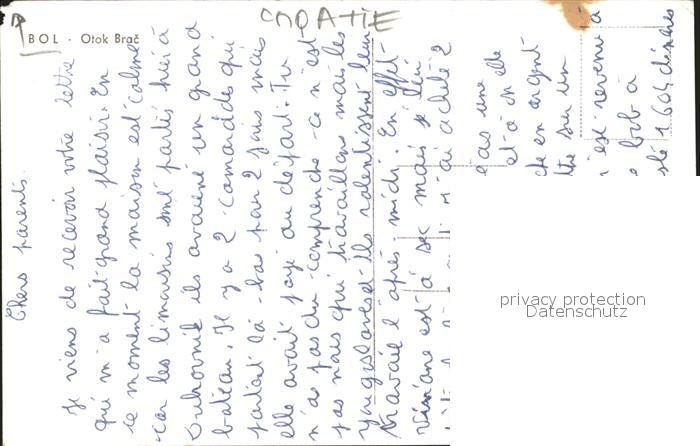 CROATIE
BOL - Otok Brač
Chers parents.
Je viens de recevoir votre lettre
qui m'a fait grand plaisir. En
ce moment la maison est calme
car les limousins sont partis hier à
Dubrovnik ils avaient un grand
bateau. Il y a 2 camarades qui
partent là-bas pour 2 jours mais
elle avait payé au départ. Tu
n'as pas du comprendre ce n'est
pas nous qui travaillons mais les
yougoslaves et ils ralentissent leur
travail l'après midi. En effet
est à sec mais je l'ai
m'ai acheté 2
pas une
et à on elle
en argent
sur un
est revenu à
bob à
1604 dinars
privacy protection
Datenschutz